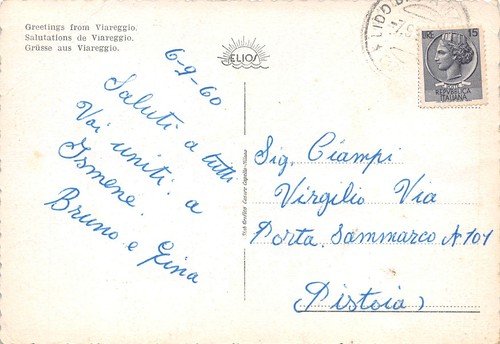 Greetings from Viareggio.
Salutations de Viareggio.
Grüsse aus Viareggio.
ELIOS
LIRE 15
REPVBBLICA
ITALIANA
6-9-60
Saluti a tutti
Voi uniti a
Ismene.
Bruno e Gina
Sig. Ciampi
Virgilio Via
Porta Sammarco N 101
(Pistoia)